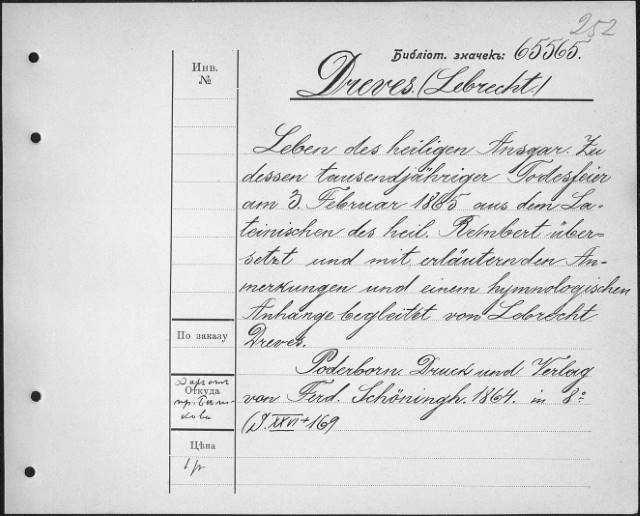 252
Библіот. значекъ: 65565.
Инв.
№
Dreves. (Lebrecht.)
Leben des heiligen Ansgar. Zu
dessen tausendjähriger Todesfeier
am 3. Februar 1865 aus dem La-
teinischen des heil. Rembert über-
setzt und mit erläuternden An-
merkungen und einem hymnologischen
Anhange begleitet von Lebrecht
Dreves.
По заказу
Poderborn. Druck und Verlag
von Ferd. Schöningh. 1864. in 8º
Откуда
пр.
+169
Цѣна
1р